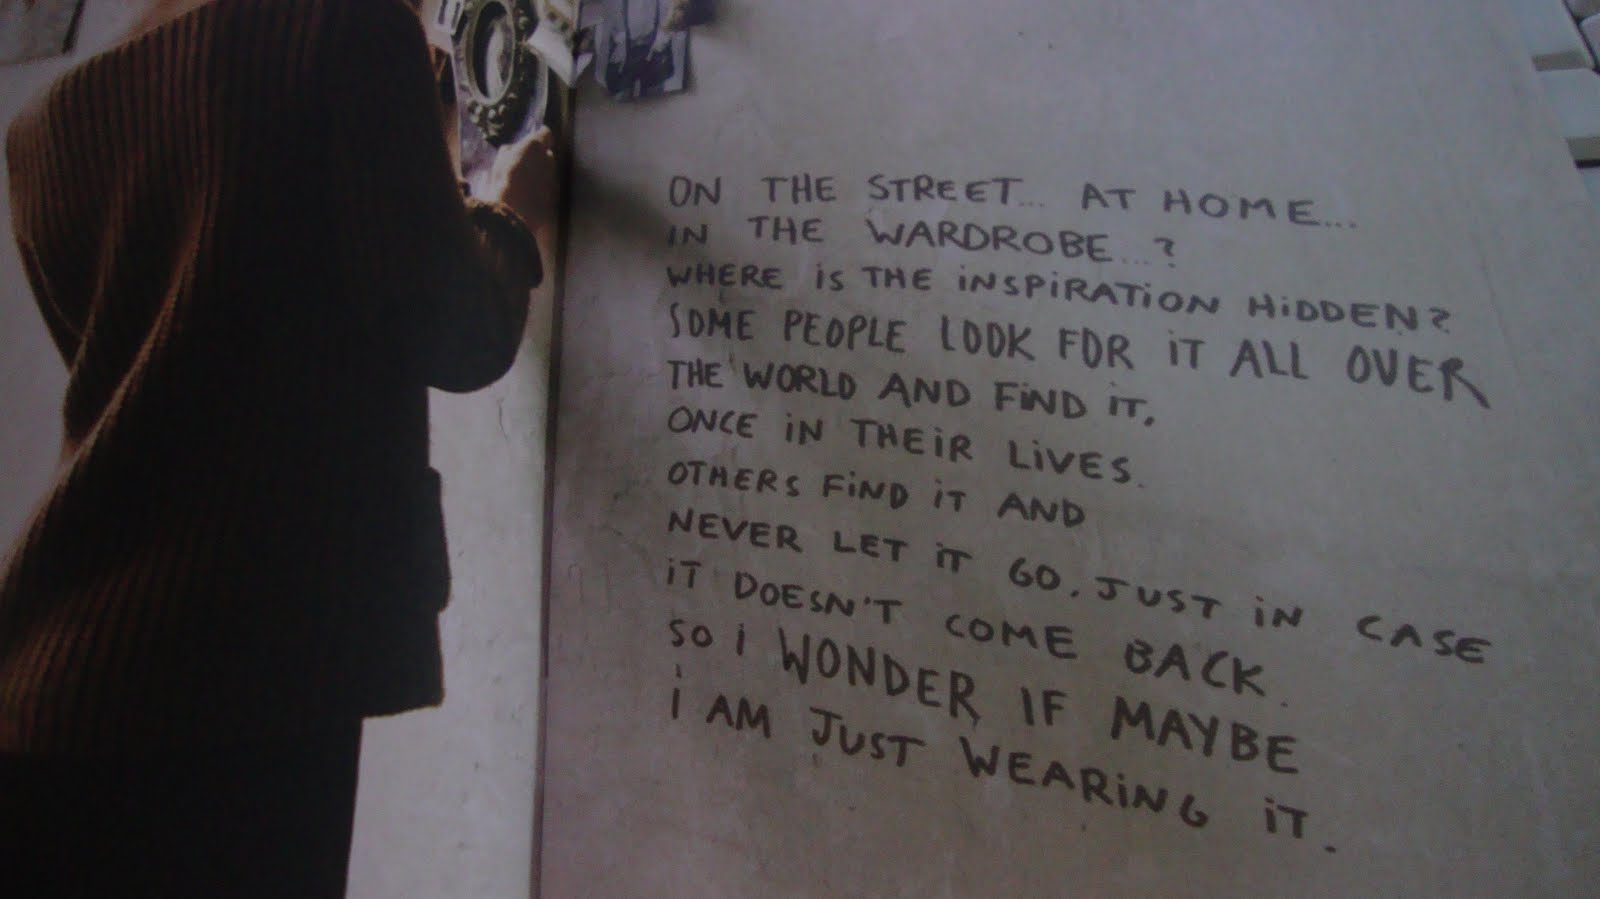 ON THE STREET... AT HOME...
IN THE WARDROBE...?
WHERE iS THE iNSPiRATiON HiDDEN?
SOME PEOPLE LOOK FOR iT ALL OVER
THE WORLD AND FiND iT,
ONCE iN THEiR LiVES.
OTHERS FiND iT AND
NEVER LET iT GO. JUST iN CASE
iT DOESN'T COME BACK.
SO i WONDER IF MAYBE
i AM JUST WEARiNG iT.